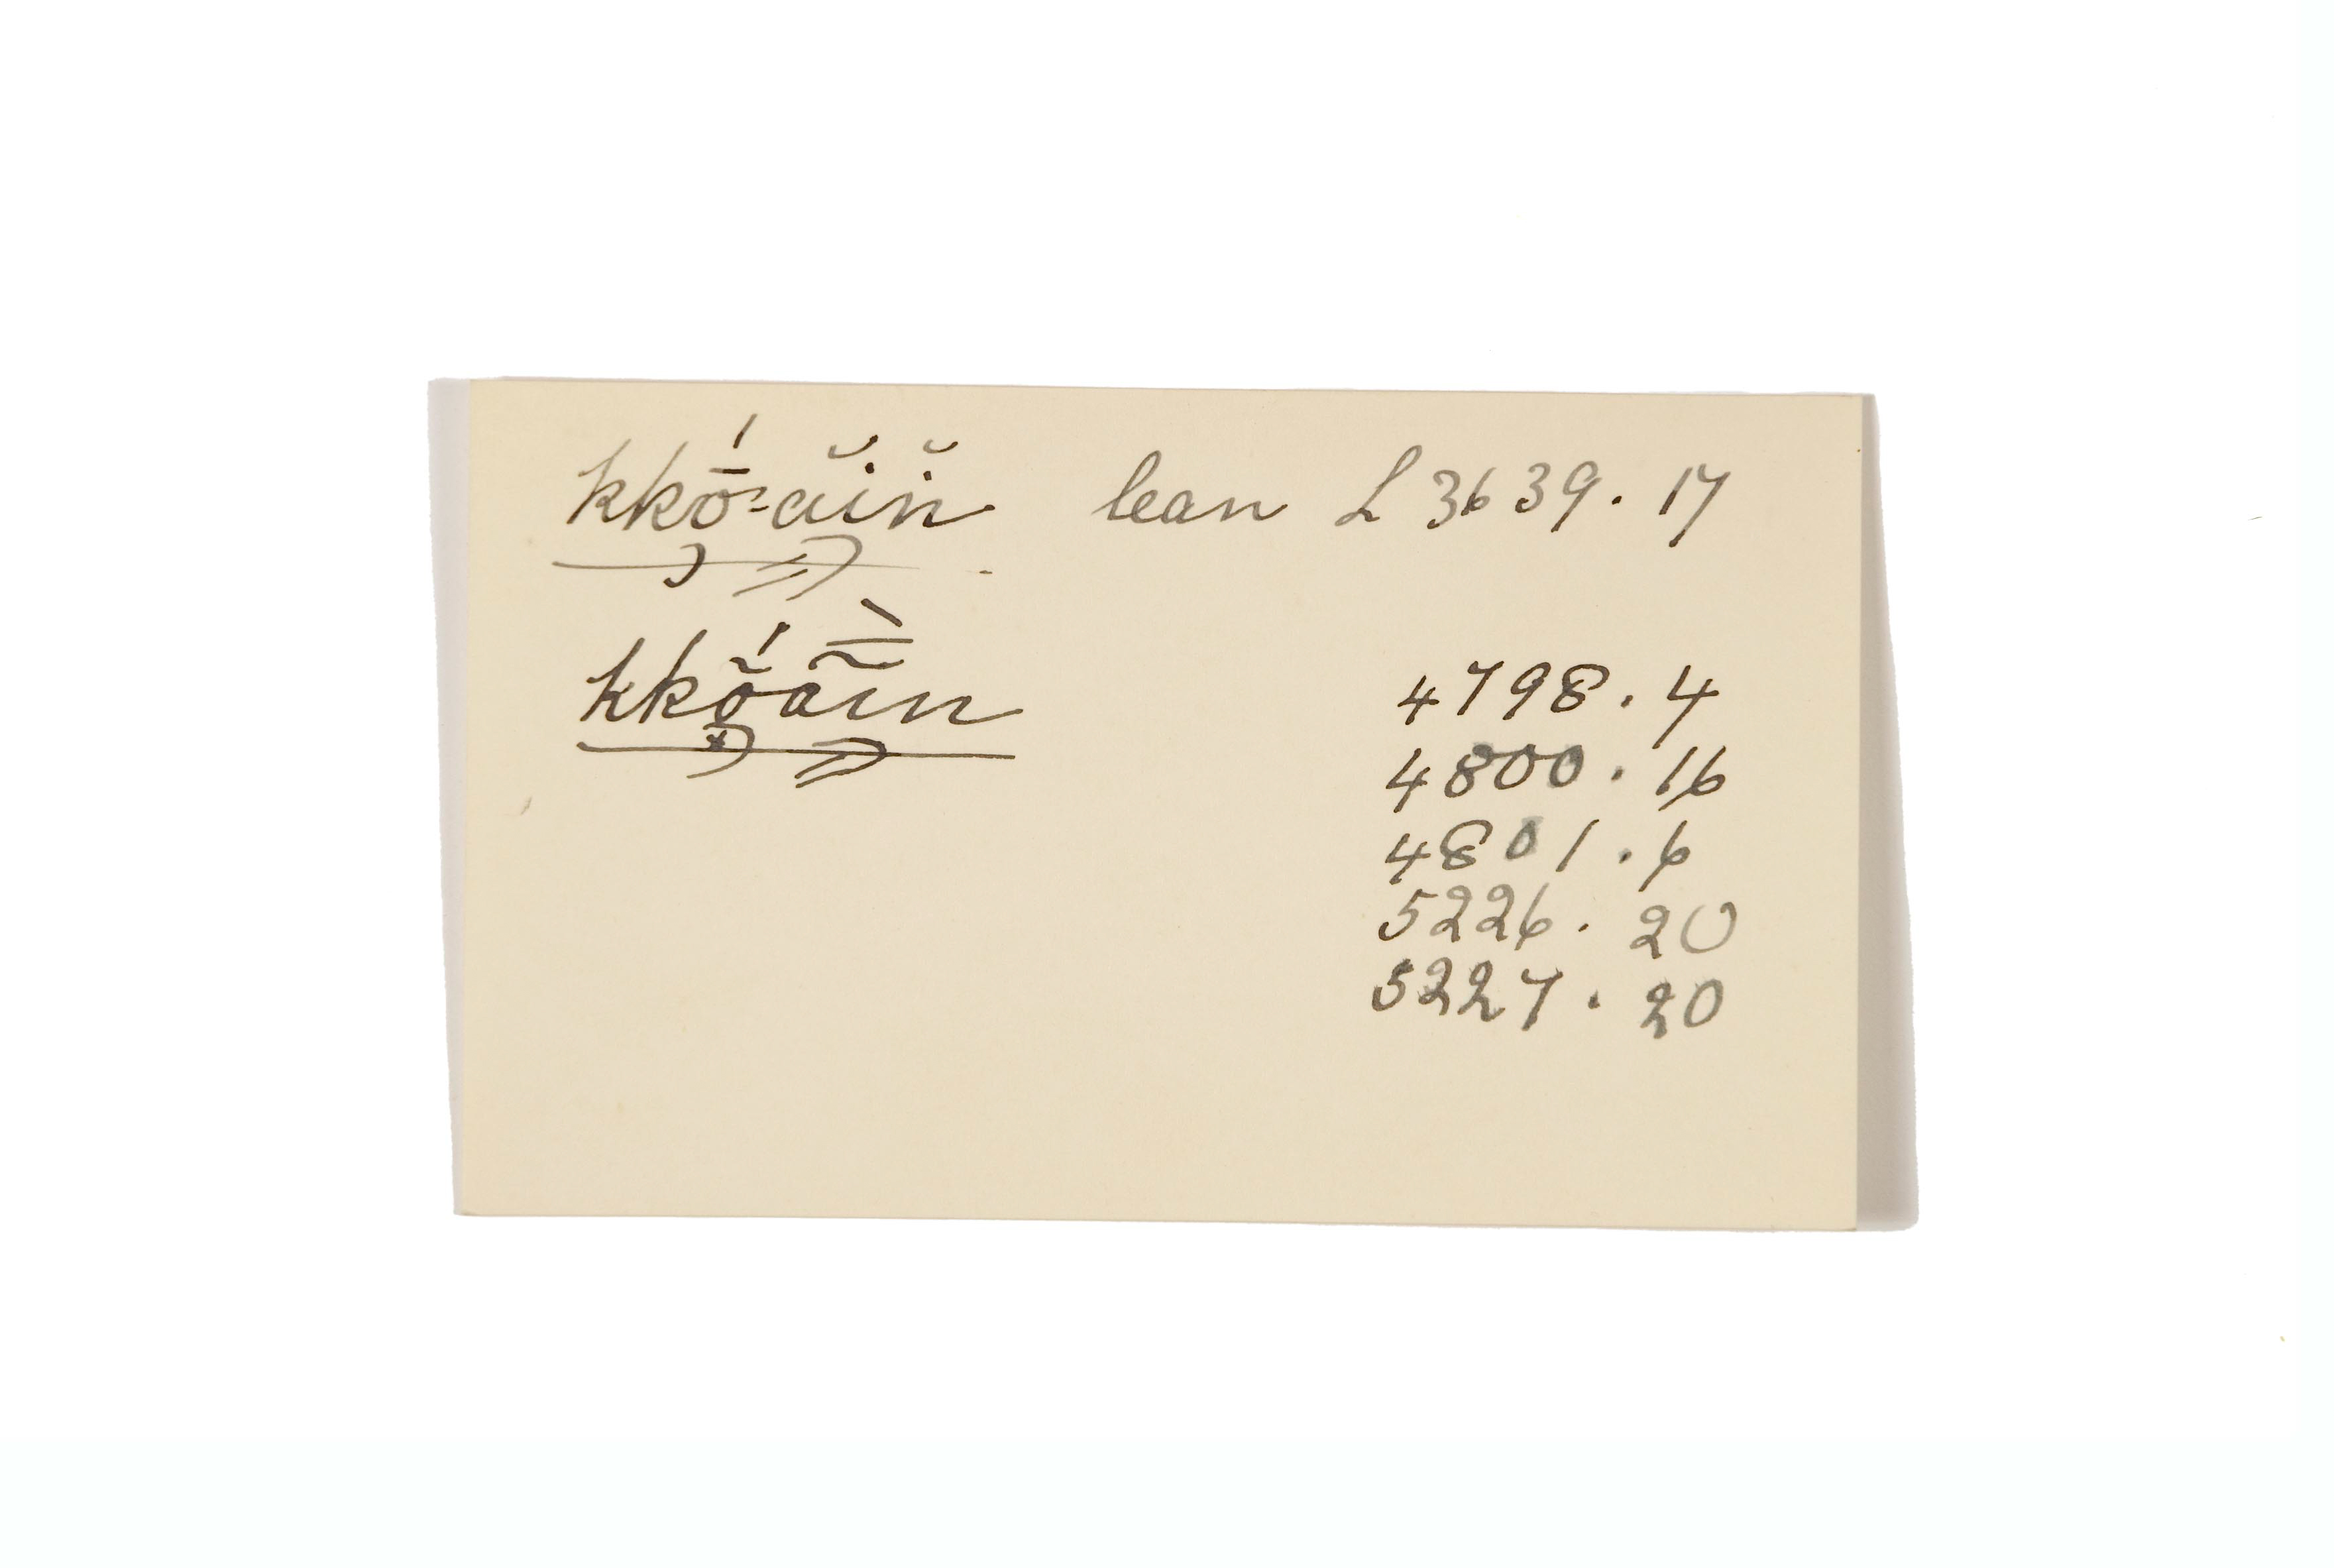 kkṓ-ăin̆ lean L 3639. 17
kkṍãìn 4798. 4
4800. 16
4801. 6
5226. 20
5227. 20